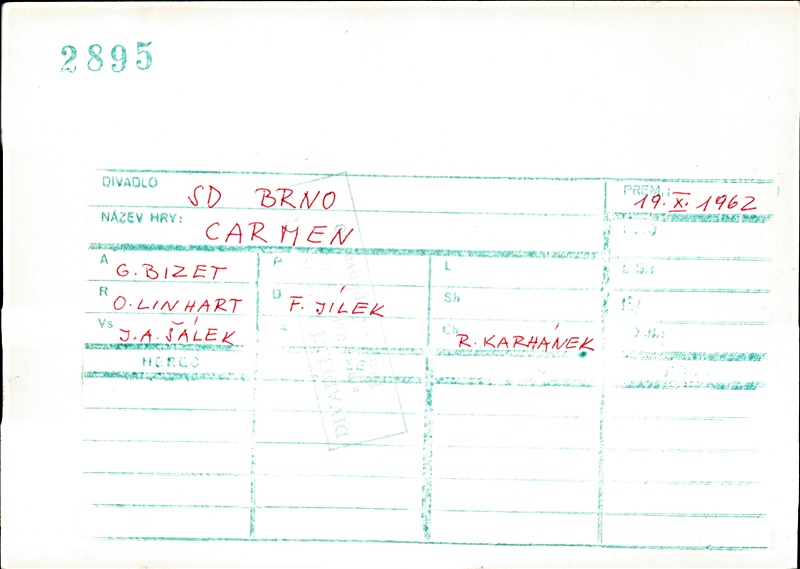 2895
DIVADLO SD BRNO PREM.: 19. X. 1962
NÁZEV HRY: CARMEN
A G. BIZET P L
R O. LINHART D F. JÍLEK Sh
Vs J. A. ŠÁLEK Ch R. KARHÁNEK
HEREC